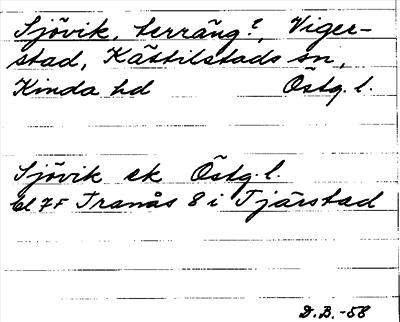 Sjövik, terräng?, Viger-
stad, Kättilstads sn,
Kinda hd Östg. l.
Sjövik ek Östg. l.
bl 7F Tranås 8 i Tjärstad
D.B. -58